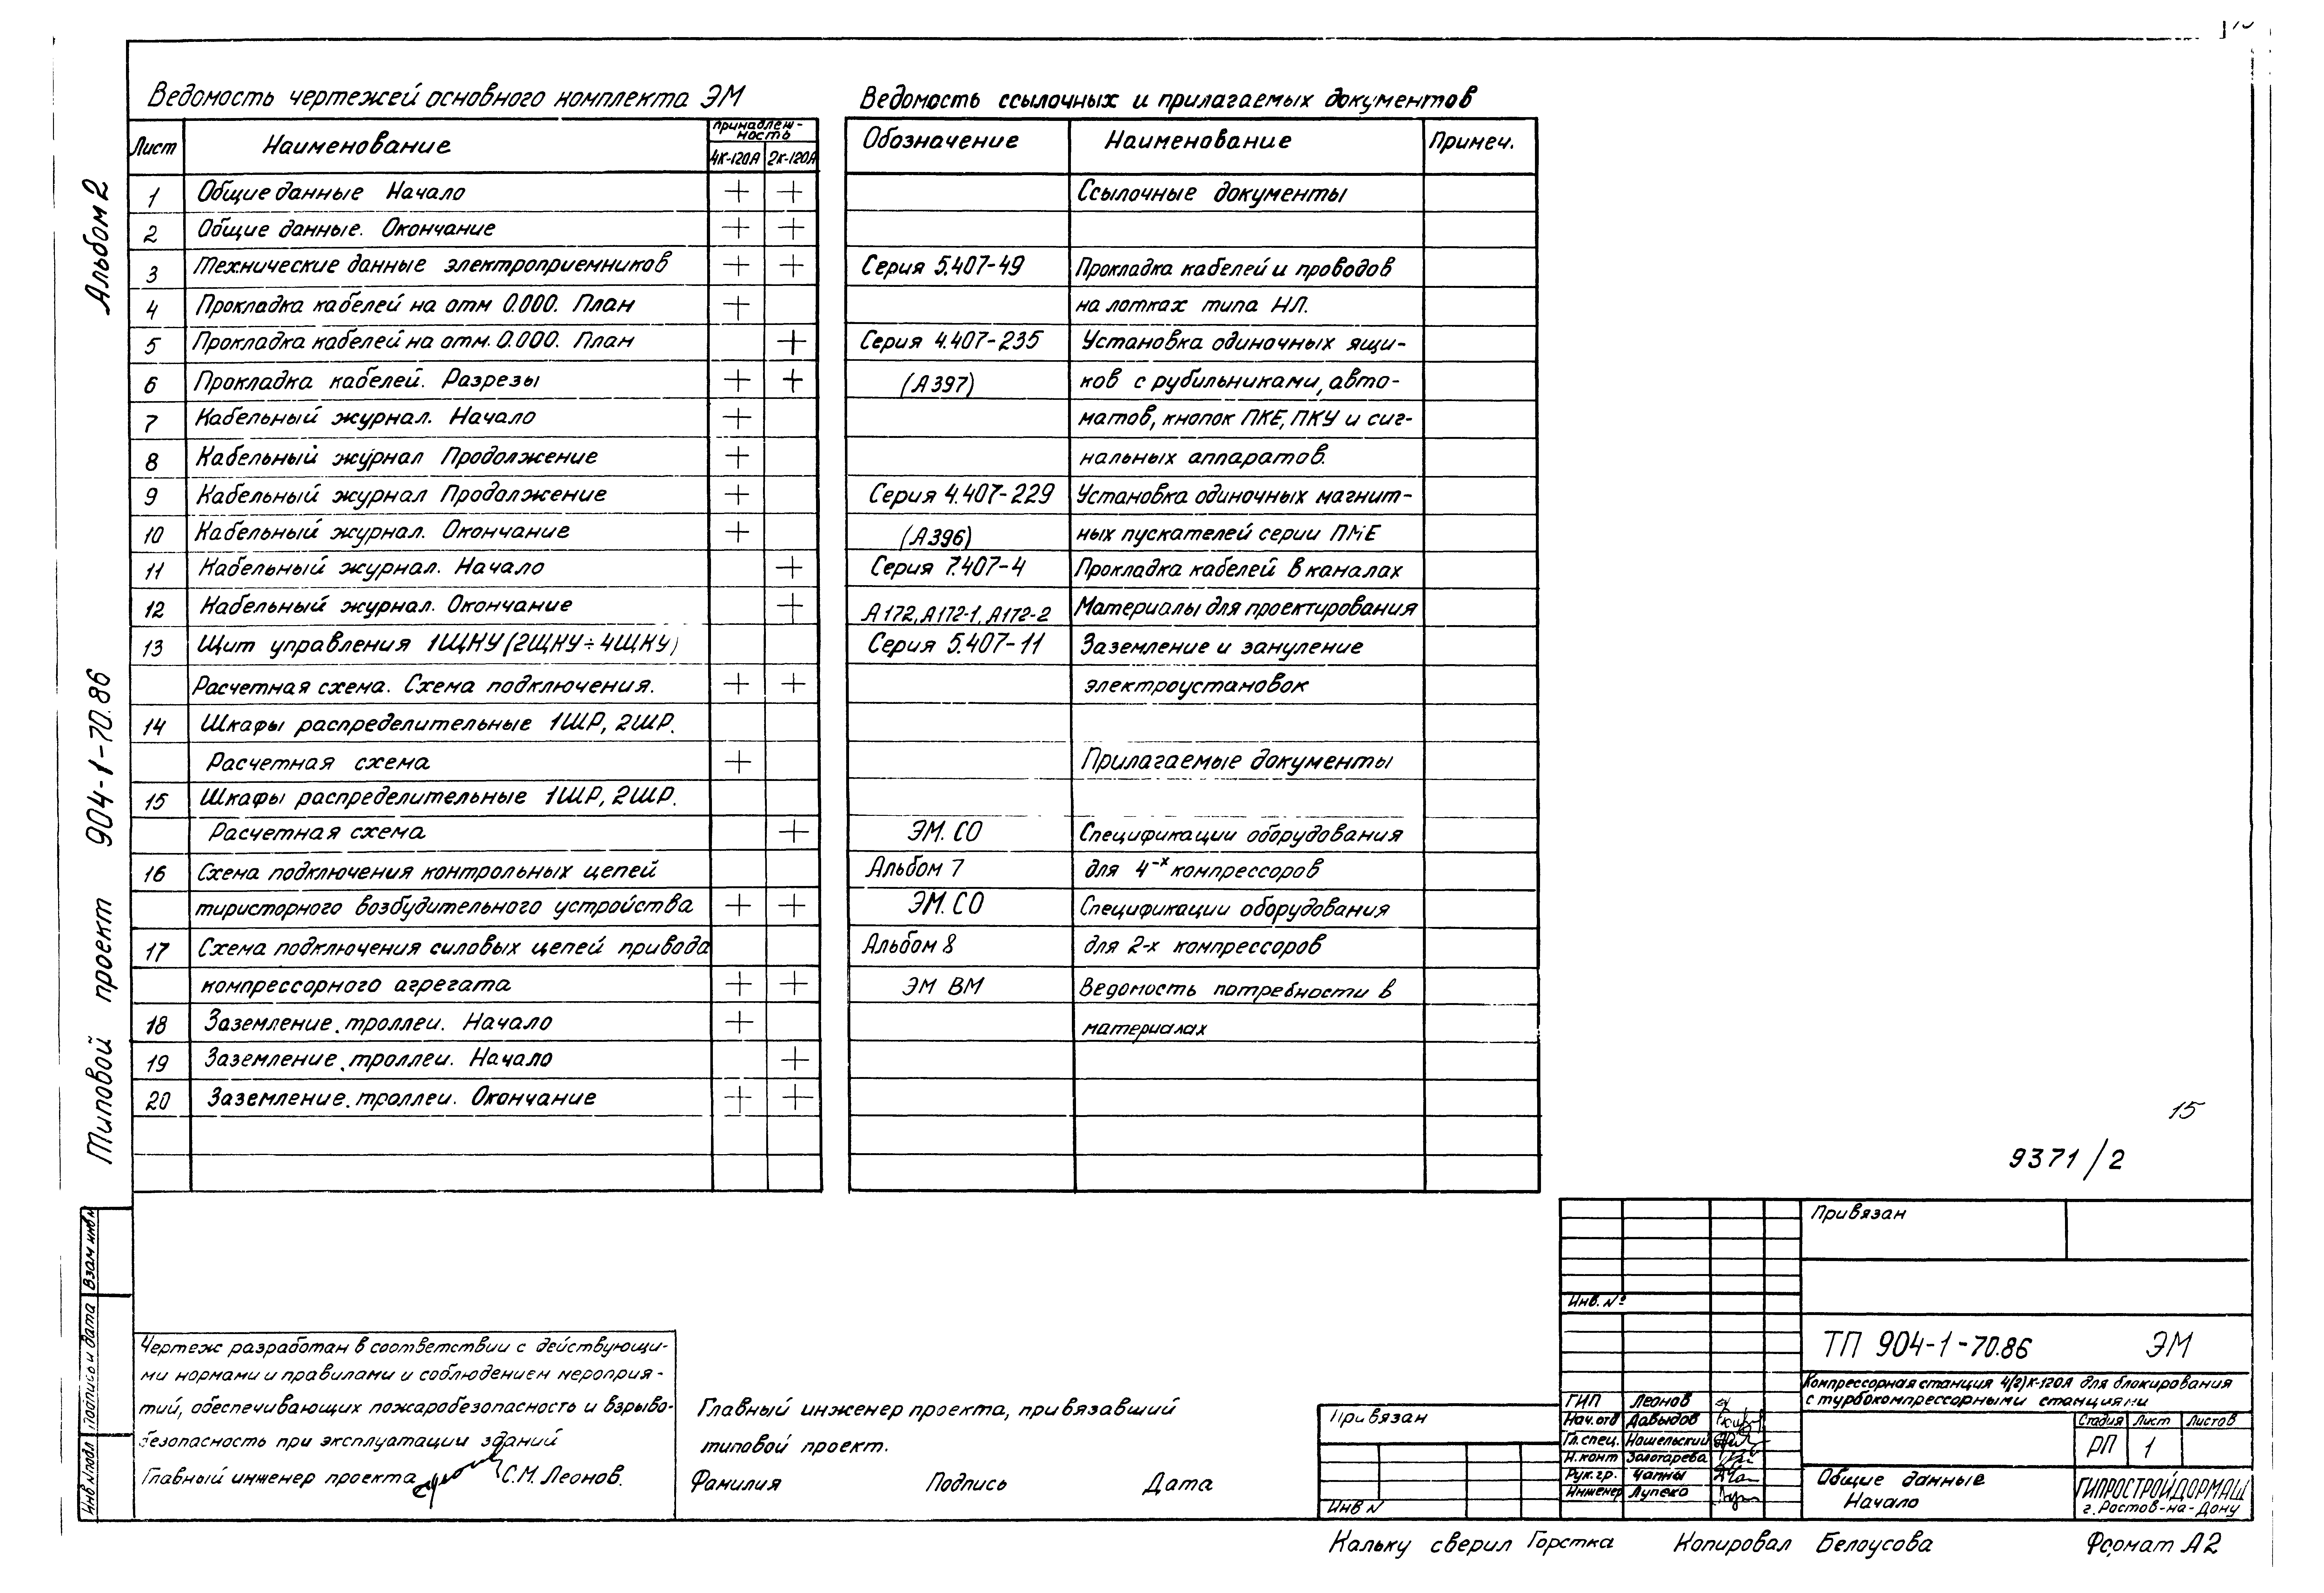 Ведомость чертежей основного комплекта ЭМ
Лист Наименование Принадлеж-
ность
4К-120А 2К-120А
1 Общие данные Начало + +
2 Общие данные. Окончание + +
3 Технические данные электроприемников + +
4 Прокладка кабелей на отм 0.000. План +
5 Прокладка кабелей на отм. 0.000. План +
6 Прокладка кабелей. Разрезы + +
7 Кабельный журнал. Начало +
8 Кабельный журнал Продолжение +
9 Кабельный журнал Продолжение +
10 Кабельный журнал. Окончание +
11 Кабельный журнал. Начало +
12 Кабельный журнал. Окончание +
13 Щит управления 1ЩКУ (2ЩКУ÷4ЩКУ)
Расчетная схема. Схема подключения. + +
14 Шкафы распределительные 1ШР, 2ШР.
Расчетная схема +
15 Шкафы распределительные 1ШР, 2ШР.
Расчетная схема +
16 Схема подключения контрольных цепей
тиристорного возбудительного устройства + +
17 Схема подключения силовых цепей привода
компрессорного агрегата + +
18 Заземление, троллеи. Начало +
19 Заземление, троллеи. Начало +
20 Заземление, троллеи. Окончание + +
Ведомость ссылочных и прилагаемых документов
Обозначение Наименование Примеч.
Ссылочные документы
Серия 5.407-49 Прокладка кабелей и проводов
на лотках типа НЛ.
Серия 4.407-235 Установка одиночных ящи-
(А397) ков с рубильниками, авто-
матов, кнопок ПКЕ, ПКУ и сиг-
нальных аппаратов.
Серия 4.407-229 Установка одиночных магнит-
(А396) ных пускателей серии ПМЕ
Серия 7.407-4 Прокладка кабелей в каналах
А172, А172-1, А172-2 Материалы для проектирования
Серия 5.407-11 Заземление и зануление
электроустановок
Прилагаемые документы
ЭМ. СО Спецификации оборудования
Альбом 7 для 4-х компрессоров
ЭМ. СО Спецификации оборудования
Альбом 8 для 2-х компрессоров
ЭМ ВМ Ведомость потребности в
материалах
Альбом 2
Типовой проект 904-1-70.86
15
9371/2
Взам инв N
Подпись и дата
Инв N подл
Чертеж разработан в соответствии с действующи-
ми нормами и правилами и соблюдением мероприя-
тий, обеспечивающих пожаробезопасность и взрыво-
безопасность при эксплуатации зданий
Главный инженер проекта С.М. Леонов.
Главный инженер проекта, привязавший
типовой проект.
Фамилия Подпись Дата
Привязан
Инв N
Инв. №
ГИП Леонов
Нач. отд Давыдов
Гл. спец. Нашельский
Н. конт Золотарева
Рук. гр. Чапны
Инженер Лупеко
Привязан
ТП 904-1-70.86 ЭМ
Компрессорная станция 4(2)К-120А для блокирования
с турбокомпрессорными станциями
Стадия Лист Листов
РП 1
Общие данные
Начало
ГИПРОСТРОЙДОРМАШ
г. Ростов-на-Дону
Кальку сверил Горстка Копировал Белоусова Формат А2